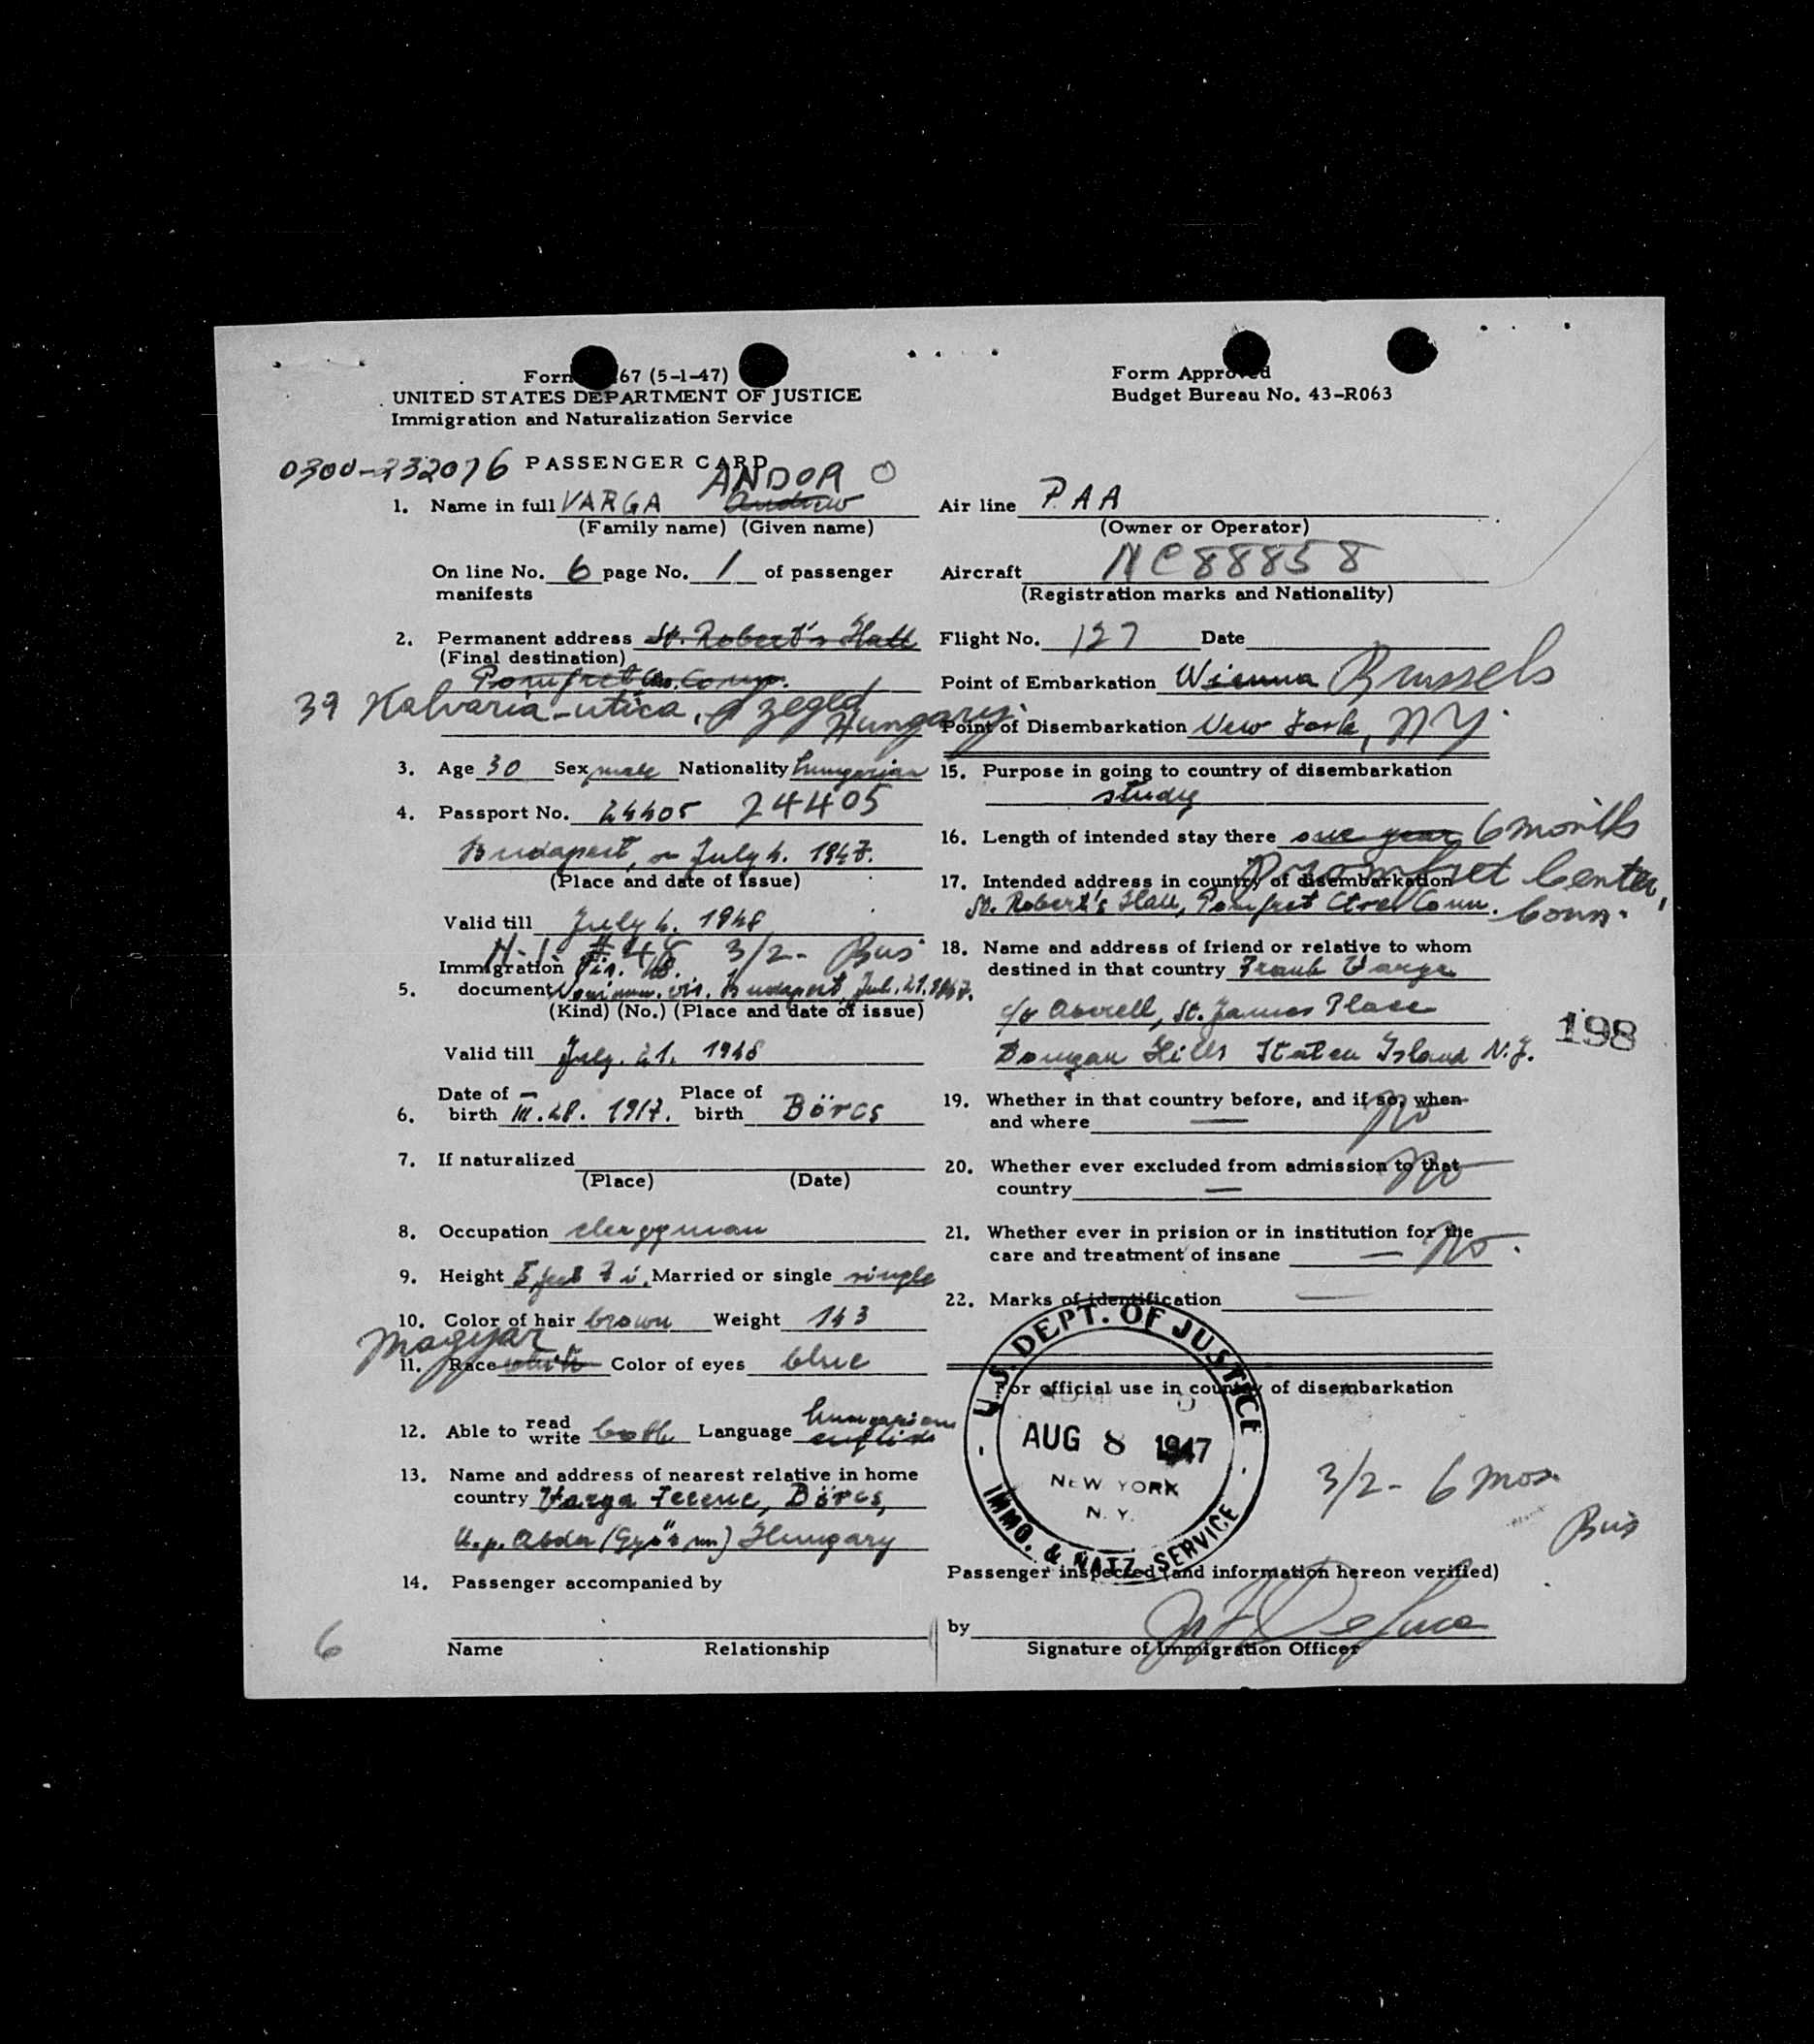 67 (5-1-47)
UNITED STATES DEPARTMENT OF JUSTICE
Immigration and Naturalization Service
Form Approved
Budget Bureau No. 43-R063
0300-332076 PASSENGER CARD
ANDOR
1. Name in full VARGA Andrew
(Family name) (Given name)
On line No. 6 page No. 1 of passenger
manifests
2. Permanent address St. Robert's Hall
(Final destination)
Pomfret Conn.
39 Kalvaria-utica, Szeged
Hungary
3. Age 30 Sex male Nationality hungarian
4. Passport No. 24405 24405
Budapest, on July 4. 1947.
(Place and date of issue)
Valid till July 4. 1948
3/2- Bus
Immigration
5. document Nonimm. vis. Budapest, Jul. 21. 1947.
(Kind) (No.) (Place and date of issue)
Valid till July. 21. 1948
6. Date of birth III. 28. 1917. Place of birth Börcs
7. If naturalized
(Place) (Date)
8. Occupation clergyman
9. Height 5 feet 7 i. Married or single single
10. Color of hair brown Weight 143
Magyar
11. Race white Color of eyes blue
12. Able to read write both Language hungarian english
13. Name and address of nearest relative in home
country Varga Ferenc, Börcs,
u.p. Abda (Győr m) Hungary
14. Passenger accompanied by
Name Relationship
6
Air line PAA
(Owner or Operator)
Aircraft NC88858
(Registration marks and Nationality)
Flight No. 127 Date
Point of Embarkation Vienna Brussels
Point of Disembarkation New York, NY.
15. Purpose in going to country of disembarkation
study
16. Length of intended stay there one year 6 months
17. Intended address in country of disembarkation
Promfret Center,
St. Robert's Hall, Pomfret Ctre Conn. Conn.
18. Name and address of friend or relative to whom
destined in that country Frank Varga
c/o Averell, St. James Place
Dongan Hills Staten Island N.Y.
198
19. Whether in that country before, and if so, when
and where — No
20. Whether ever excluded from admission to that
country — No
21. Whether ever in prision or in institution for the
care and treatment of insane — No.
22. Marks of identification —
For official use in country of disembarkation
U.S. DEPT. OF JUSTICE
AUG 8 1947
NEW YORK
N. Y.
IMMO. & NATZ. SERVICE
3/2- 6 mos.
Bus
Passenger inspected (and information hereon verified)
by
Signature of Immigration Officer